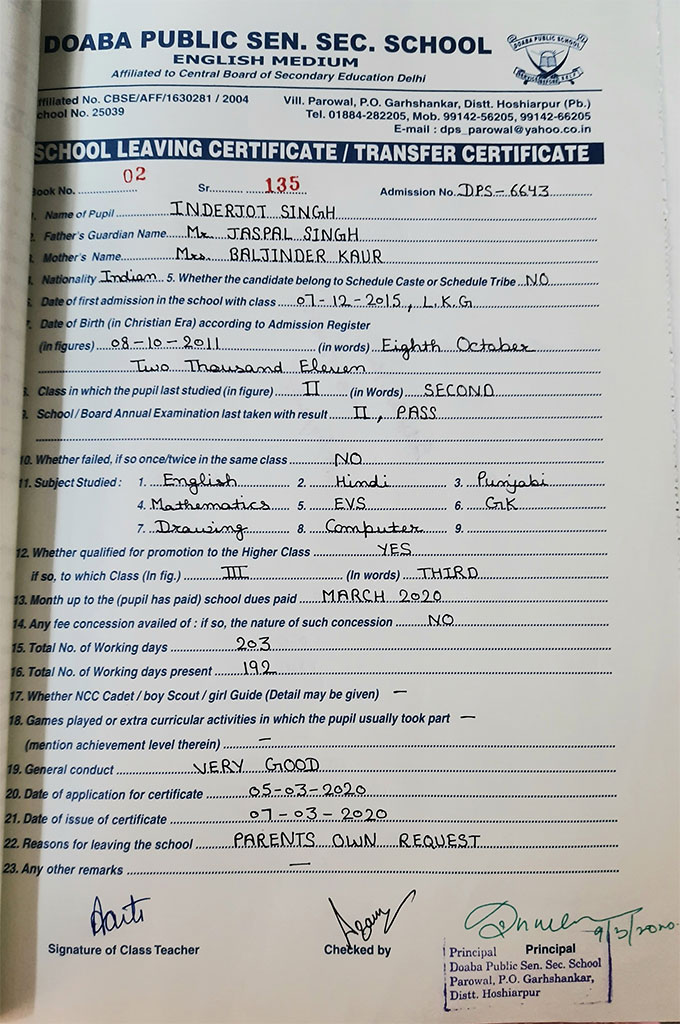 DOABA PUBLIC SEN. SEC. SCHOOL
ENGLISH MEDIUM
Affiliated to Central Board of Secondary Education Delhi
DOABA PUBLIC SCHOOL
ffiliated No. CBSE/AFF/1630281 / 2004
chool No. 25039
Vill. Parowal, P.O. Garhshankar, Distt. Hoshiarpur (Pb.)
Tel. 01884-282205, Mob. 99142-56205, 99142-66205
E-mail : dps_parowal@yahoo.co.in
SCHOOL LEAVING CERTIFICATE / TRANSFER CERTIFICATE
ook No. 02 Sr. 135 Admission No. DPS-6643
. Name of Pupil INDERJOT SINGH
. Father's Guardian Name Mr. JASPAL SINGH
. Mother's Name Mrs. BALJINDER KAUR
. Nationality Indian 5. Whether the candidate belong to Schedule Caste or Schedule Tribe NO
. Date of first admission in the school with class 07-12-2015, L.K.G
. Date of Birth (in Christian Era) according to Admission Register
(in figures) 08-10-2011 (in words) Eighth October
Two Thousand Eleven
. Class in which the pupil last studied (in figure) II (in Words) SECOND
. School / Board Annual Examination last taken with result II, PASS
10. Whether failed, if so once/twice in the same class NO
11. Subject Studied : 1. English 2. Hindi 3. Punjabi
4. Mathematics 5. EVS 6. GK
7. Drawing 8. Computer 9.
12. Whether qualified for promotion to the Higher Class YES
if so, to which Class (In fig.) III (In words) THIRD
13. Month up to the (pupil has paid) school dues paid MARCH 2020
14. Any fee concession availed of : if so, the nature of such concession NO
15. Total No. of Working days 203
16. Total No. of Working days present 192
17. Whether NCC Cadet / boy Scout / girl Guide (Detail may be given) —
18. Games played or extra curricular activities in which the pupil usually took part —
(mention achievement level therein) —
19. General conduct VERY GOOD
20. Date of application for certificate 05-03-2020
21. Date of issue of certificate 07-03-2020
22. Reasons for leaving the school PARENTS OWN REQUEST
23. Any other remarks —
9/3/2020
Signature of Class Teacher Checked by Principal
Principal
Doaba Public Sen. Sec. School
Parowal, P.O. Garhshankar,
Distt. Hoshiarpur